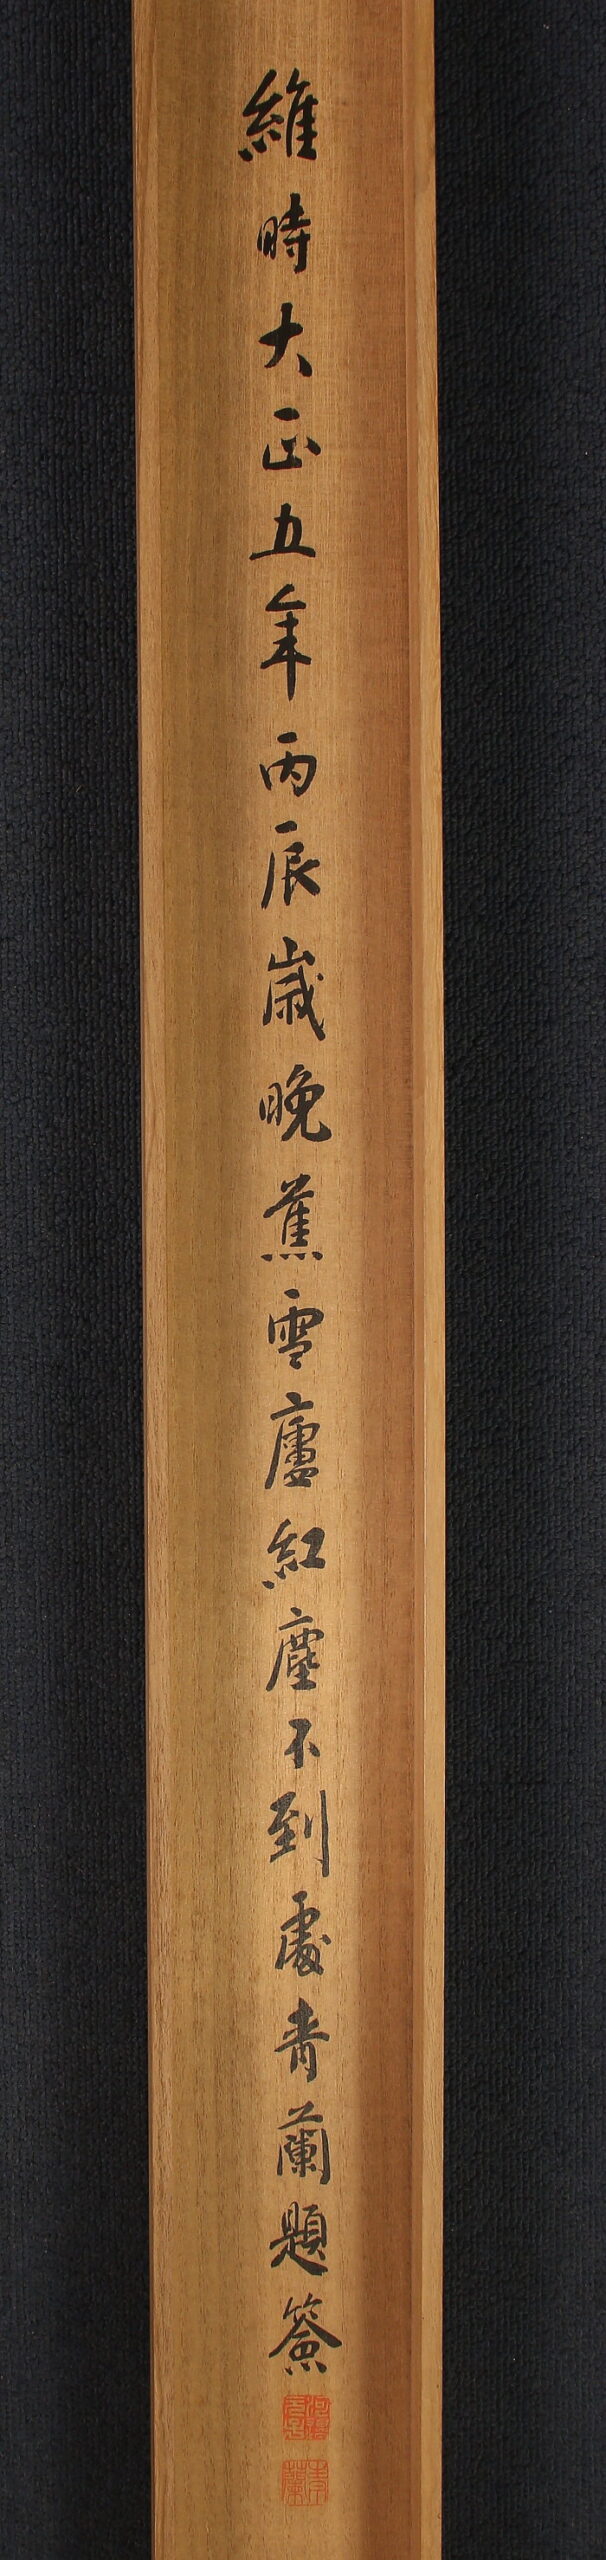 維時大正五年丙辰歳晩蕉雪廬紅塵不到處青蘭題簽
青蘭